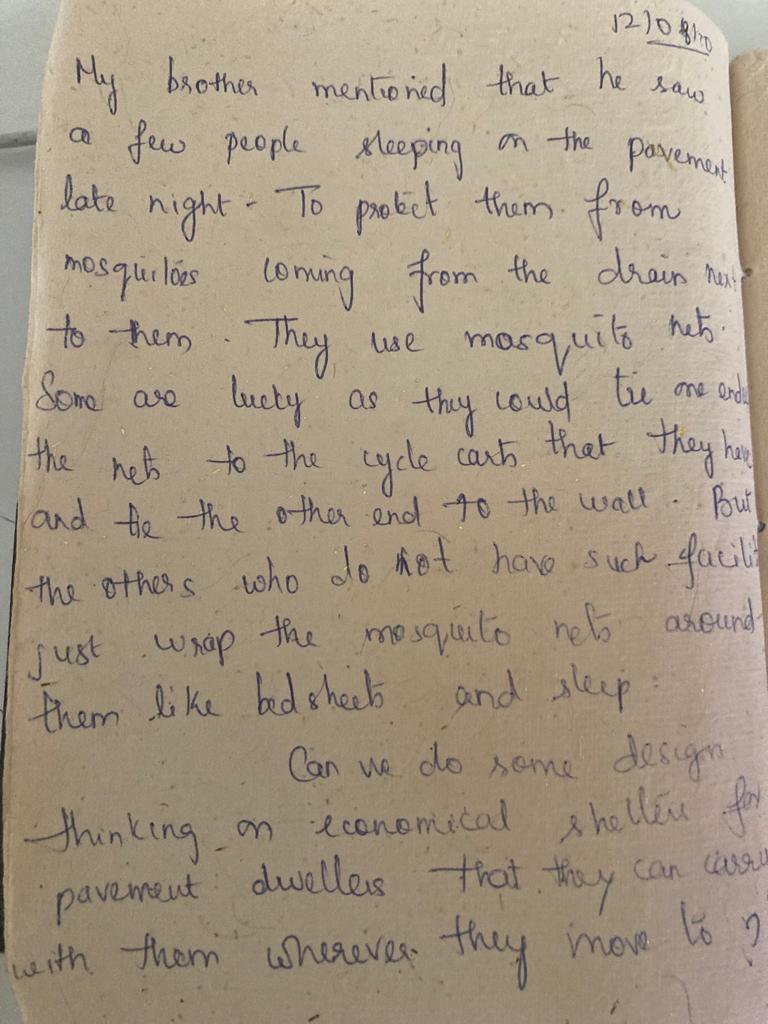 12/08/20
My brother mentioned that he saw
a few people sleeping on the pavement
late night - To protect them from
mosquitoes coming from the drain next
to them. They use mosquito nets.
Some are lucky as they could tie one end
the nets to the cycle carts that they have
and tie the other end to the wall. But
the others who do not have such facilit
just wrap the mosquito nets around
them like bedsheets and sleep.
Can we do some design
thinking on economical shelters for
pavement dwellers that they can carry
with them wherever they move to ?